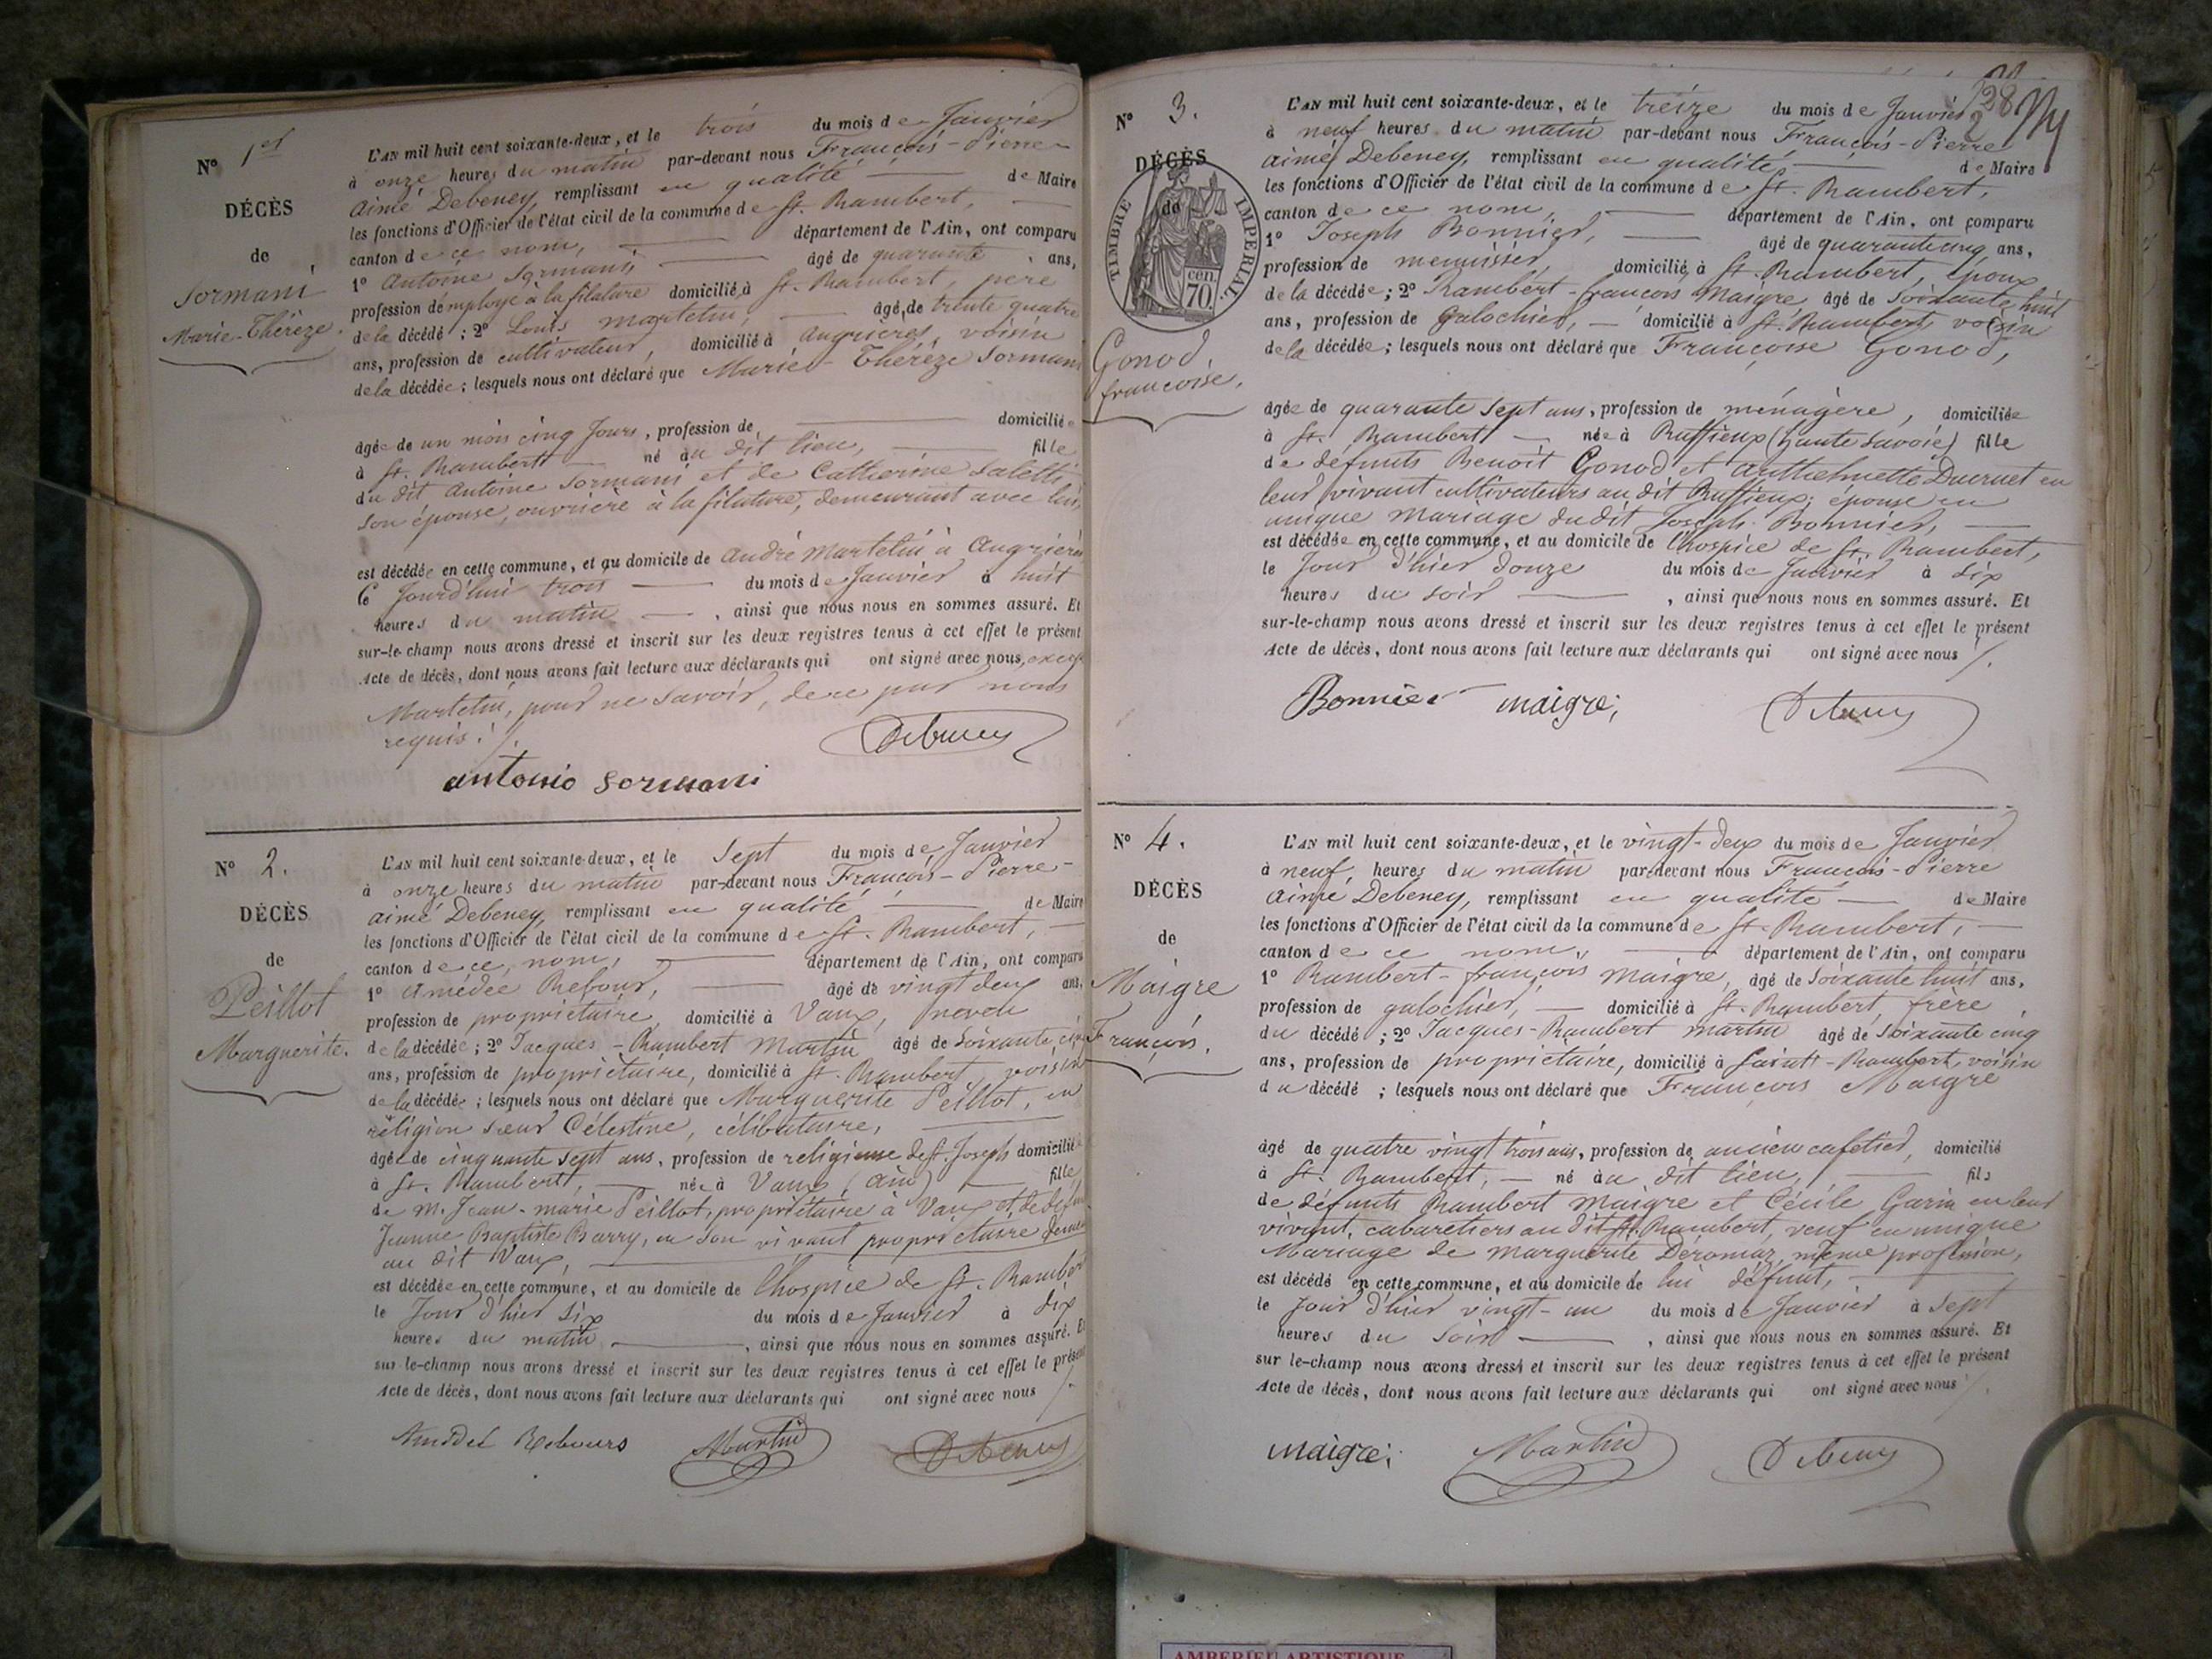 N° 1er
DÉCÈS
de
Sormani
Marie-Thérèze.
L'AN mil huit cent soixante-deux, et le trois du mois de Janvier
à onze heures du matin par-devant nous François-Pierre-
aimé Debeney, remplissant en qualité de Maire
les fonctions d'Officier de l'état civil de la commune de St. Rambert,
canton de ce nom, département de l'Ain, ont comparu
1° Antoine Sormani âgé de quarante ans,
profession de employé à la filature domicilié à St. Rambert, père
de la décédé ; 2° Louis Martelin, âgé de trente quatre
ans, profession de cultivateur, domicilié à angrieres, voisin
de la décédée ; lesquels nous ont déclaré que Marie-Thérèze Sormani
âgée de un mois cinq Jours, profession de domiciliée
à St. Rambert né au dit lieu, fille
du dit Antoine Sormani et de Catherine Saletti
son épouse, ouvrière à la filature, demeurant avec lui,
est décédée en cette commune, et au domicile de andré Martelin à Angrieres
le Jourd'hui trois du mois de Janvier à huit
heures du matin , ainsi que nous nous en sommes assuré. Et
sur-le-champ nous avons dressé et inscrit sur les deux registres tenus à cet effet le présent
Acte de décès, dont nous avons fait lecture aux déclarants qui ont signé avec nous, excepté
Martelin, pour ne savoir, de ce par nous
requis ./.
Debeney
antonio sormani
N° 2.
DÉCÈS
de
Peillot
Marguerite.
L'AN mil huit cent soixante-deux, et le Sept du mois de Janvier
à onze heures du matin par-devant nous François-Pierre-
aimé Debeney, remplissant en qualité de Maire
les fonctions d'Officier de l'état civil de la commune de St. Rambert,
canton de ce nom, département de l'Ain, ont comparu
1° Amédée Rebour, âgé de vingt deux ans,
profession de propriétaire, domicilié à Vaux, neveu
de la décédée ; 2° Jacques-Rambert Martin âgé de Soixante cinq
ans, profession de propriétaire, domicilié à St. Rambert, voisin
de la décédée ; lesquels nous ont déclaré que Marguerite Peillot, en
réligion sœur Célestine, célibataire,
âgée de cinquante sept ans, profession de religieuse de St. Joseph domiciliée
à St. Rambert, née à Vaux (ain) fille
de m. Jean-marie Peillot, propriétaire à Vaux et de
Jeanne Baptiste Barry, en son vivant propriétaire
au dit Vaux,
est décédée en cette commune, et au domicile de lhospice de St. Rambert
le Jour d'hier Six du mois de Janvier à dix
heures du matin , ainsi que nous nous en sommes assuré. Et
sur-le-champ nous avons dressé et inscrit sur les deux registres tenus à cet effet le présent
Acte de décès, dont nous avons fait lecture aux déclarants qui ont signé avec nous ./.
Rebours Martin Debeney
128
N° 3.
DÉCÈS
de
TIMBRE IMPÉRIAL.
70 cen
Gonod,
françoise.
L'AN mil huit cent soixante-deux, et le treize du mois de Janvier
à neuf heures du matin par-devant nous François-Pierre
aimé Debeney, remplissant en qualité de Maire
les fonctions d'Officier de l'état civil de la commune de St. Rambert,
canton de ce nom, département de l'Ain, ont comparu
1° Joseph Bonnier, âgé de quarante cinq ans,
profession de menuisier, domicilié à St. Rambert, époux
de la décédée ; 2° Rambert-françois Maigre âgé de Soixante huit
ans, profession de Galochier, domicilié à St. Rambert, voisin
de la décédée ; lesquels nous ont déclaré que Françoise Gonod,
âgée de quarante Sept ans, profession de ménagère, domiciliée
à St. Rambert née à Ruffieux (haute Savoie) fille
de défunts Benoît Gonod et Anthelmette Ducruet en
leur vivant cultivateurs au dit Ruffieux ; épouse en
unique Mariage du dit Joseph Bonnier,
est décédée en cette commune, et au domicile de lhospice de St. Rambert,
le Jour d'hier douze du mois de Janvier à six
heures du soir , ainsi que nous nous en sommes assuré. Et
sur-le-champ nous avons dressé et inscrit sur les deux registres tenus à cet effet le présent
Acte de décès, dont nous avons fait lecture aux déclarants qui ont signé avec nous ./.
Bonnier maigre; Debeney
N° 4.
DÉCÈS
de
Maigre
François.
L'AN mil huit cent soixante-deux, et le vingt-deux du mois de Janvier
à neuf heures du matin par-devant nous François-Pierre
aimé Debeney, remplissant en qualité de Maire
les fonctions d'Officier de l'état civil de la commune de St. Rambert,
canton de ce nom, département de l'Ain, ont comparu
1° Rambert-françois Maigre, âgé de Soixante huit ans,
profession de galochier, domicilié à St. Rambert, frère
du décédé ; 2° Jacques-Rambert martin âgé de Soixante cinq
ans, profession de propriétaire, domicilié à Saint-Rambert, voisin
du décédé ; lesquels nous ont déclaré que François Maigre
âgé de quatre vingt trois ans, profession de ancien cafetier, domicilié
à St. Rambert, né au dit lieu, fils
de défunts Rambert Maigre et Cécile Garin en leur
vivant, cabaretiers au dit St. Rambert, veuf en unique
Mariage de Marguerite Déromaz, même profession,
est décédé en cette commune, et au domicile de lui défunt,
le Jour d'hier vingt-un du mois de Janvier à Sept
heures du Soir , ainsi que nous nous en sommes assuré. Et
sur le-champ nous avons dressé et inscrit sur les deux registres tenus à cet effet le présent
Acte de décès, dont nous avons fait lecture aux déclarants qui ont signé avec nous ./.
maigre; Martin Debeney
AMBERIEU ARTISTIQUE